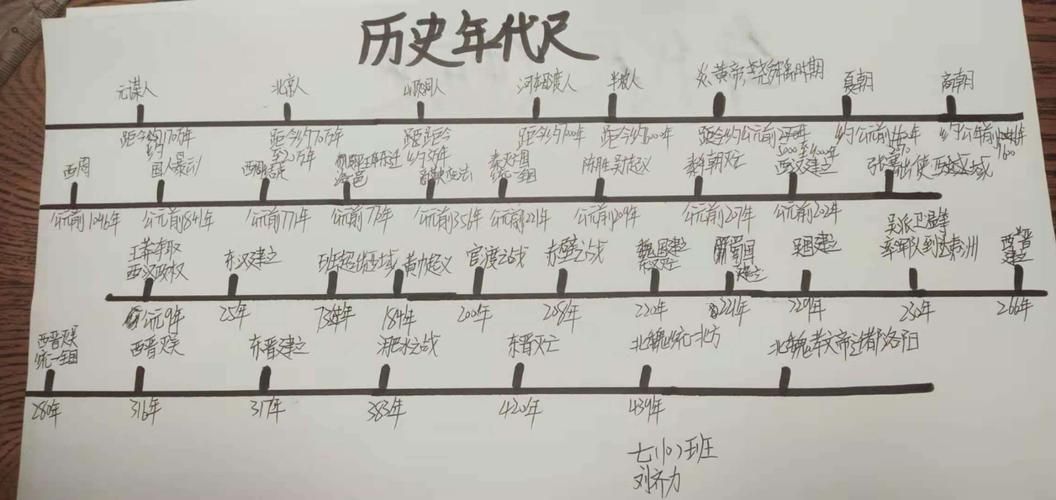 历史年代尺
元谋人 北京人 山顶洞人 河姆渡人 半坡人 炎、黄帝、尧舜禹时期 夏朝 商朝
距今约170万年 距今约70万年至20万年 距今约3万年 距今约7000年 距今约6000年 距今约 约公元前 约公元前1600
西周 国人暴动 西周 陈胜吴广起义 秦朝灭亡 西汉建立 张骞出使西域
公元前1046年 公元前841年 公元前771年 公元前77年 公元前356年 公元前221年 公元前209年 公元前207年 公元前202年
王莽夺取西汉政权 东汉建立 班超出使西域 黄巾起义 官渡之战 赤壁之战 魏国建立 蜀国建立 吴国建立 吴派卫温等率军队到达夷洲 西晋建立
公元9年 25年 73年 184年 200年 208年 220年 221年 229年 230年 266年
西晋灭吴统一全国 西晋灭吴 东晋建立 淝水之战 东晋灭亡 北魏统一北方 北魏孝文帝迁都洛阳
280年 316年 317年 383年 420年 439年
七(10)班
刘齐力